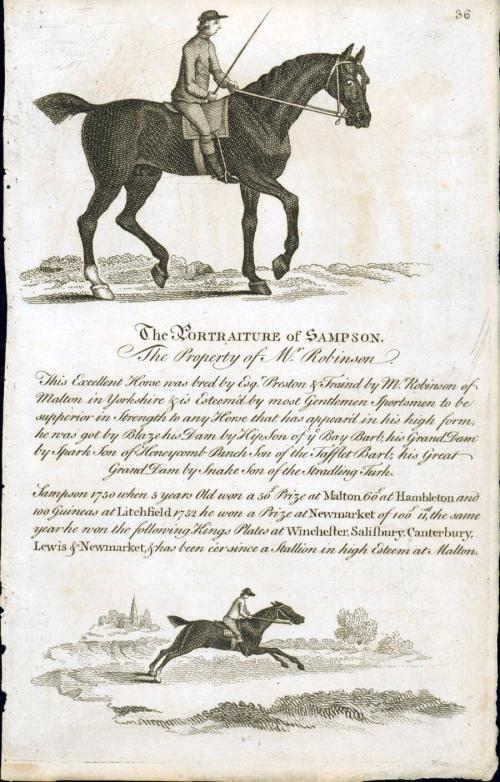 36
The PORTRAITURE of SAMPSON.
The Property of Mr Robinson.
This Excellent Horse was bred by Esqr Preston & Traind by Mr Robinson of
Malton in Yorkshire & is Esteem'd by most Gentlemen Sportsmen to be
supperior in Strength to any Horse that has appear'd in his high form,
he was got by Blaze his Dam by Hip, Son of ye Bay Barb; his Grand Dam
by Spark Son of Honeycomb Punch Son of the Tafflet Barb; his Great
Grand Dam by Snake Son of the Stradling Turk.
Sampson 1750 when 5 years Old won a 50£ Prize at Malton 60£ at Hambleton and
100 Guineas at Litchfield 1752 he won a Prize at Newmarket of 100£ the same
year he won the following Kings Plates at Winchester, Salisbury, Canterbury,
Lewis & Newmarket, & has been eer since a Stallion in high Esteem at Malton.